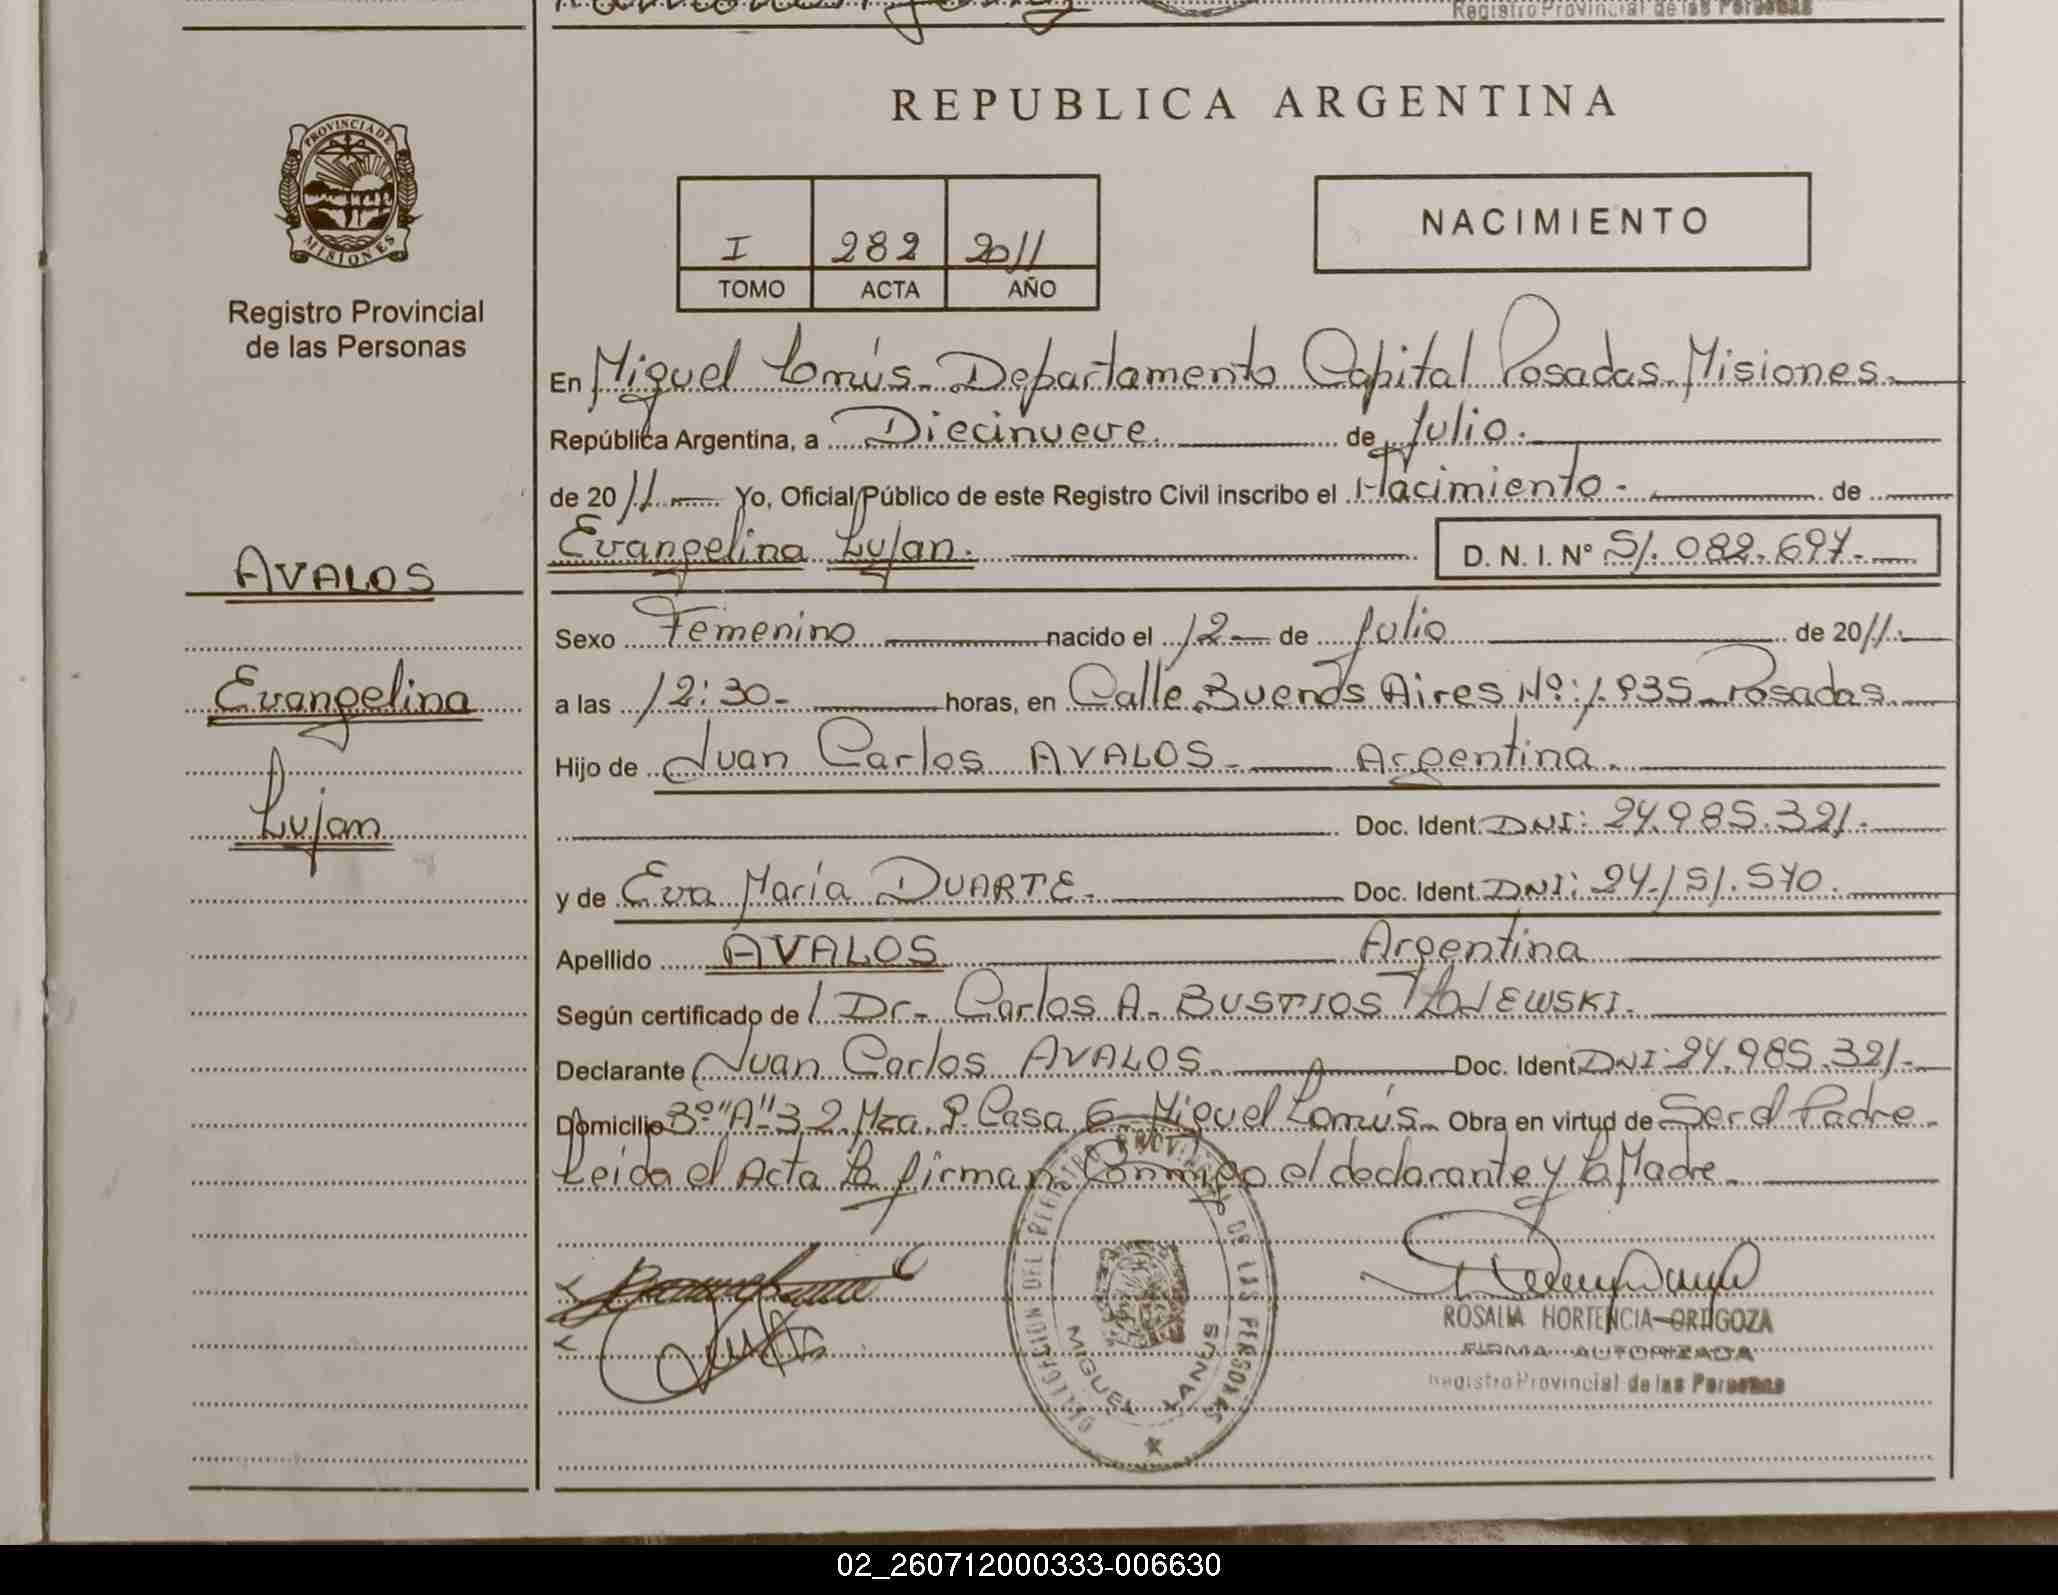 Registro Provincial de las Personas
PROVINCIA DE
MISIONES
Registro Provincial
de las Personas
AVALOS
Evangelina
Lujan
REPUBLICA ARGENTINA
I 282 2011
TOMO ACTA AÑO
NACIMIENTO
En Miguel Lanús - Departamento Capital Posadas - Misiones.-
República Argentina, a Diecinueve. de Julio.
de 2011 Yo, Oficial Público de este Registro Civil inscribo el Nacimiento - de
Evangelina Lujan. D. N. I. N° 51.082.697.-
Sexo Femenino nacido el 12 de Julio de 2011.-
a las 12:30- horas, en Calle Buenos Aires Nº: 1.935 - Posadas.
Hijo de Juan Carlos AVALOS - Argentina.
Doc. Ident. DNI: 24.985.321.-
y de Eva María DUARTE.- Doc. Ident. DNI: 24.151.570.
Apellido AVALOS Argentina
Según certificado de Dr. Carlos A. BUSTIOS
Declarante Juan Carlos AVALOS. Doc. Ident. DNI: 24.985.321.-
Domicilio Bº "A" 3-2 Mza. P. Casa 6 - Miguel Lanús. Obra en virtud de Ser el Padre.
Leida el Acta la firman Conmigo el declarante y la Madre.
DELEGACION DEL REGISTRO PROVINCIAL DE LAS PERSONAS
MIGUEL LANUS
ROSALIA HORTENCIA ORTIGOZA
FIRMA AUTORIZADA
Registro Provincial de las Personas
02_260712000333-006630